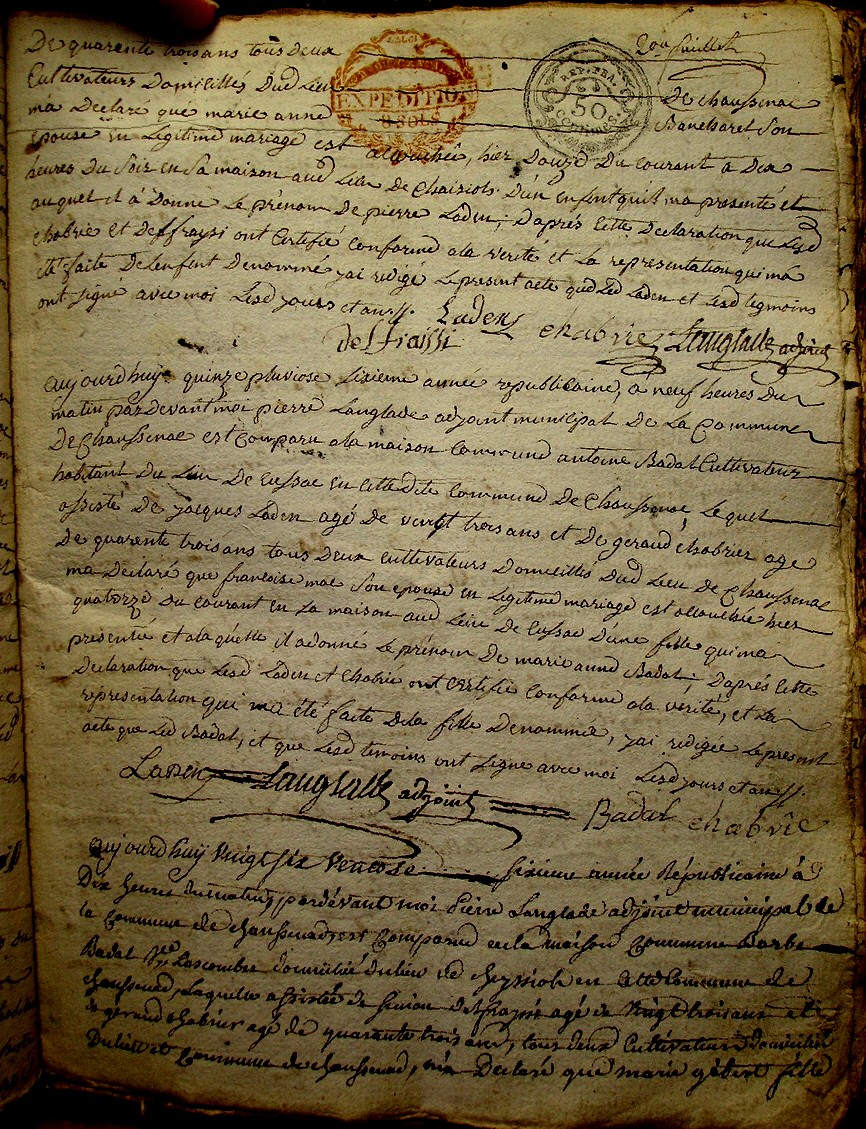 De quarente troisans tous deux
2eme feuillet
EXPEDITION
8 SOLS
REP. FRA.
50
CENTIMES
Cultivateurs Domicilliés Dud Lieu De chaussenac
ma Declaré que marie anne Bancharel Son
epouse en Legitime mariage est accouchée, hier Douze Du courant a Dix
heures Du Soir en Sa maison aud Lieu De chaissiols D'un enfent quil ma presenté et
auquel il á Donné Le prénom De pierre Laden; Daprés Cette Declaration que Lesd
chabrie et Deffraissi ont Certifié conforme ala verité et La representation qui ma
été faite De Lenfent Denommé jai redigé Le present acte qued Led Laden et Lesd temoins
ont signé avec moi Lesd jours et an
Laden chabrie Langlade adjoint
deffraissi
aujourdhuy quinze pluviose Sixieme année republicaine, a neuf heures du
matin par Devant moi pierre Langlade adjoint municipal De La Commune
De Chaussenac est Comparu ala maison Commune antoine Badal Cultivateur
habitant Du Lieu De Cussac en Cette Dite Commune De Chaussenac Lequel
assisté De jacques Laden agé De vingt trois ans et De geraud Chabrier age
De quarente troisans tous Deux cultivateurs Domicilliés Dud Lieu De Chaussenac
ma Declaré que francoise mac Son epouse en Legitime mariage est accouchée hier
quatorze Du Courant en La maison aud Lieu De Cussac D'une fille qui ma
presentée et ala quelle il adonné Le prénom De marie anne Badal; Daprés Cette
Declaration que Lesd Laden et Chabrié ont Certifié Conforme ala verité, et La
representation qui ma été faite Dela fille Denommée, jai redigée Le present
acte que Led Badal, et que Lesd temoins ont Signé avec moi Lesd jours et an
Laden Langlade adjoint Badal chabrie
aujourdhuÿ Vingt six Ventose sixieme année Républicaine à
Dix heures du matin, pardevant moi Pierre Langlade adjoint municipal de
la Commune de chaussenac est Comparue en la maison Commune Barbe
Badal Lascombe domiciliée du lieu de cheyssiols en Cette Commune de
chaussenac, Laquelle assistée de agé de Vingt trois ans et
de geraud chabrier agé de quarante trois ans, tous deux Cultivateurs domiciliés
Du lieu et Commune de chaussenac, m'a Declaré que marie gibert fille